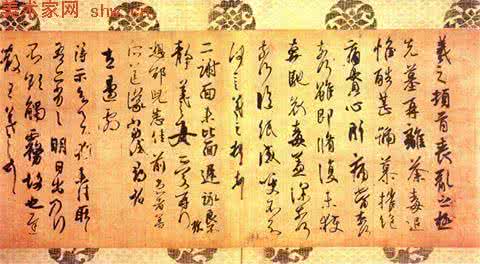 美术家网
羲之頓首喪亂之極
先墓再離荼毒追
惟酷甚號慕摧絕
痛貫心肝痛當奈何
奈何雖即脩復未獲
奔馳哀毒益深奈何
奈何臨紙感哽不知
何言羲之頓首頓首
二謝面未比面遲詠良不
靜羲之女愛再拜
想邵兒悉佳前患者善
所送議當試尋省
左邊劇
得示知足下猶未佳耿耿
吾亦劣劣明日出乃行
不欲觸霧故也遲
散王羲之頓首